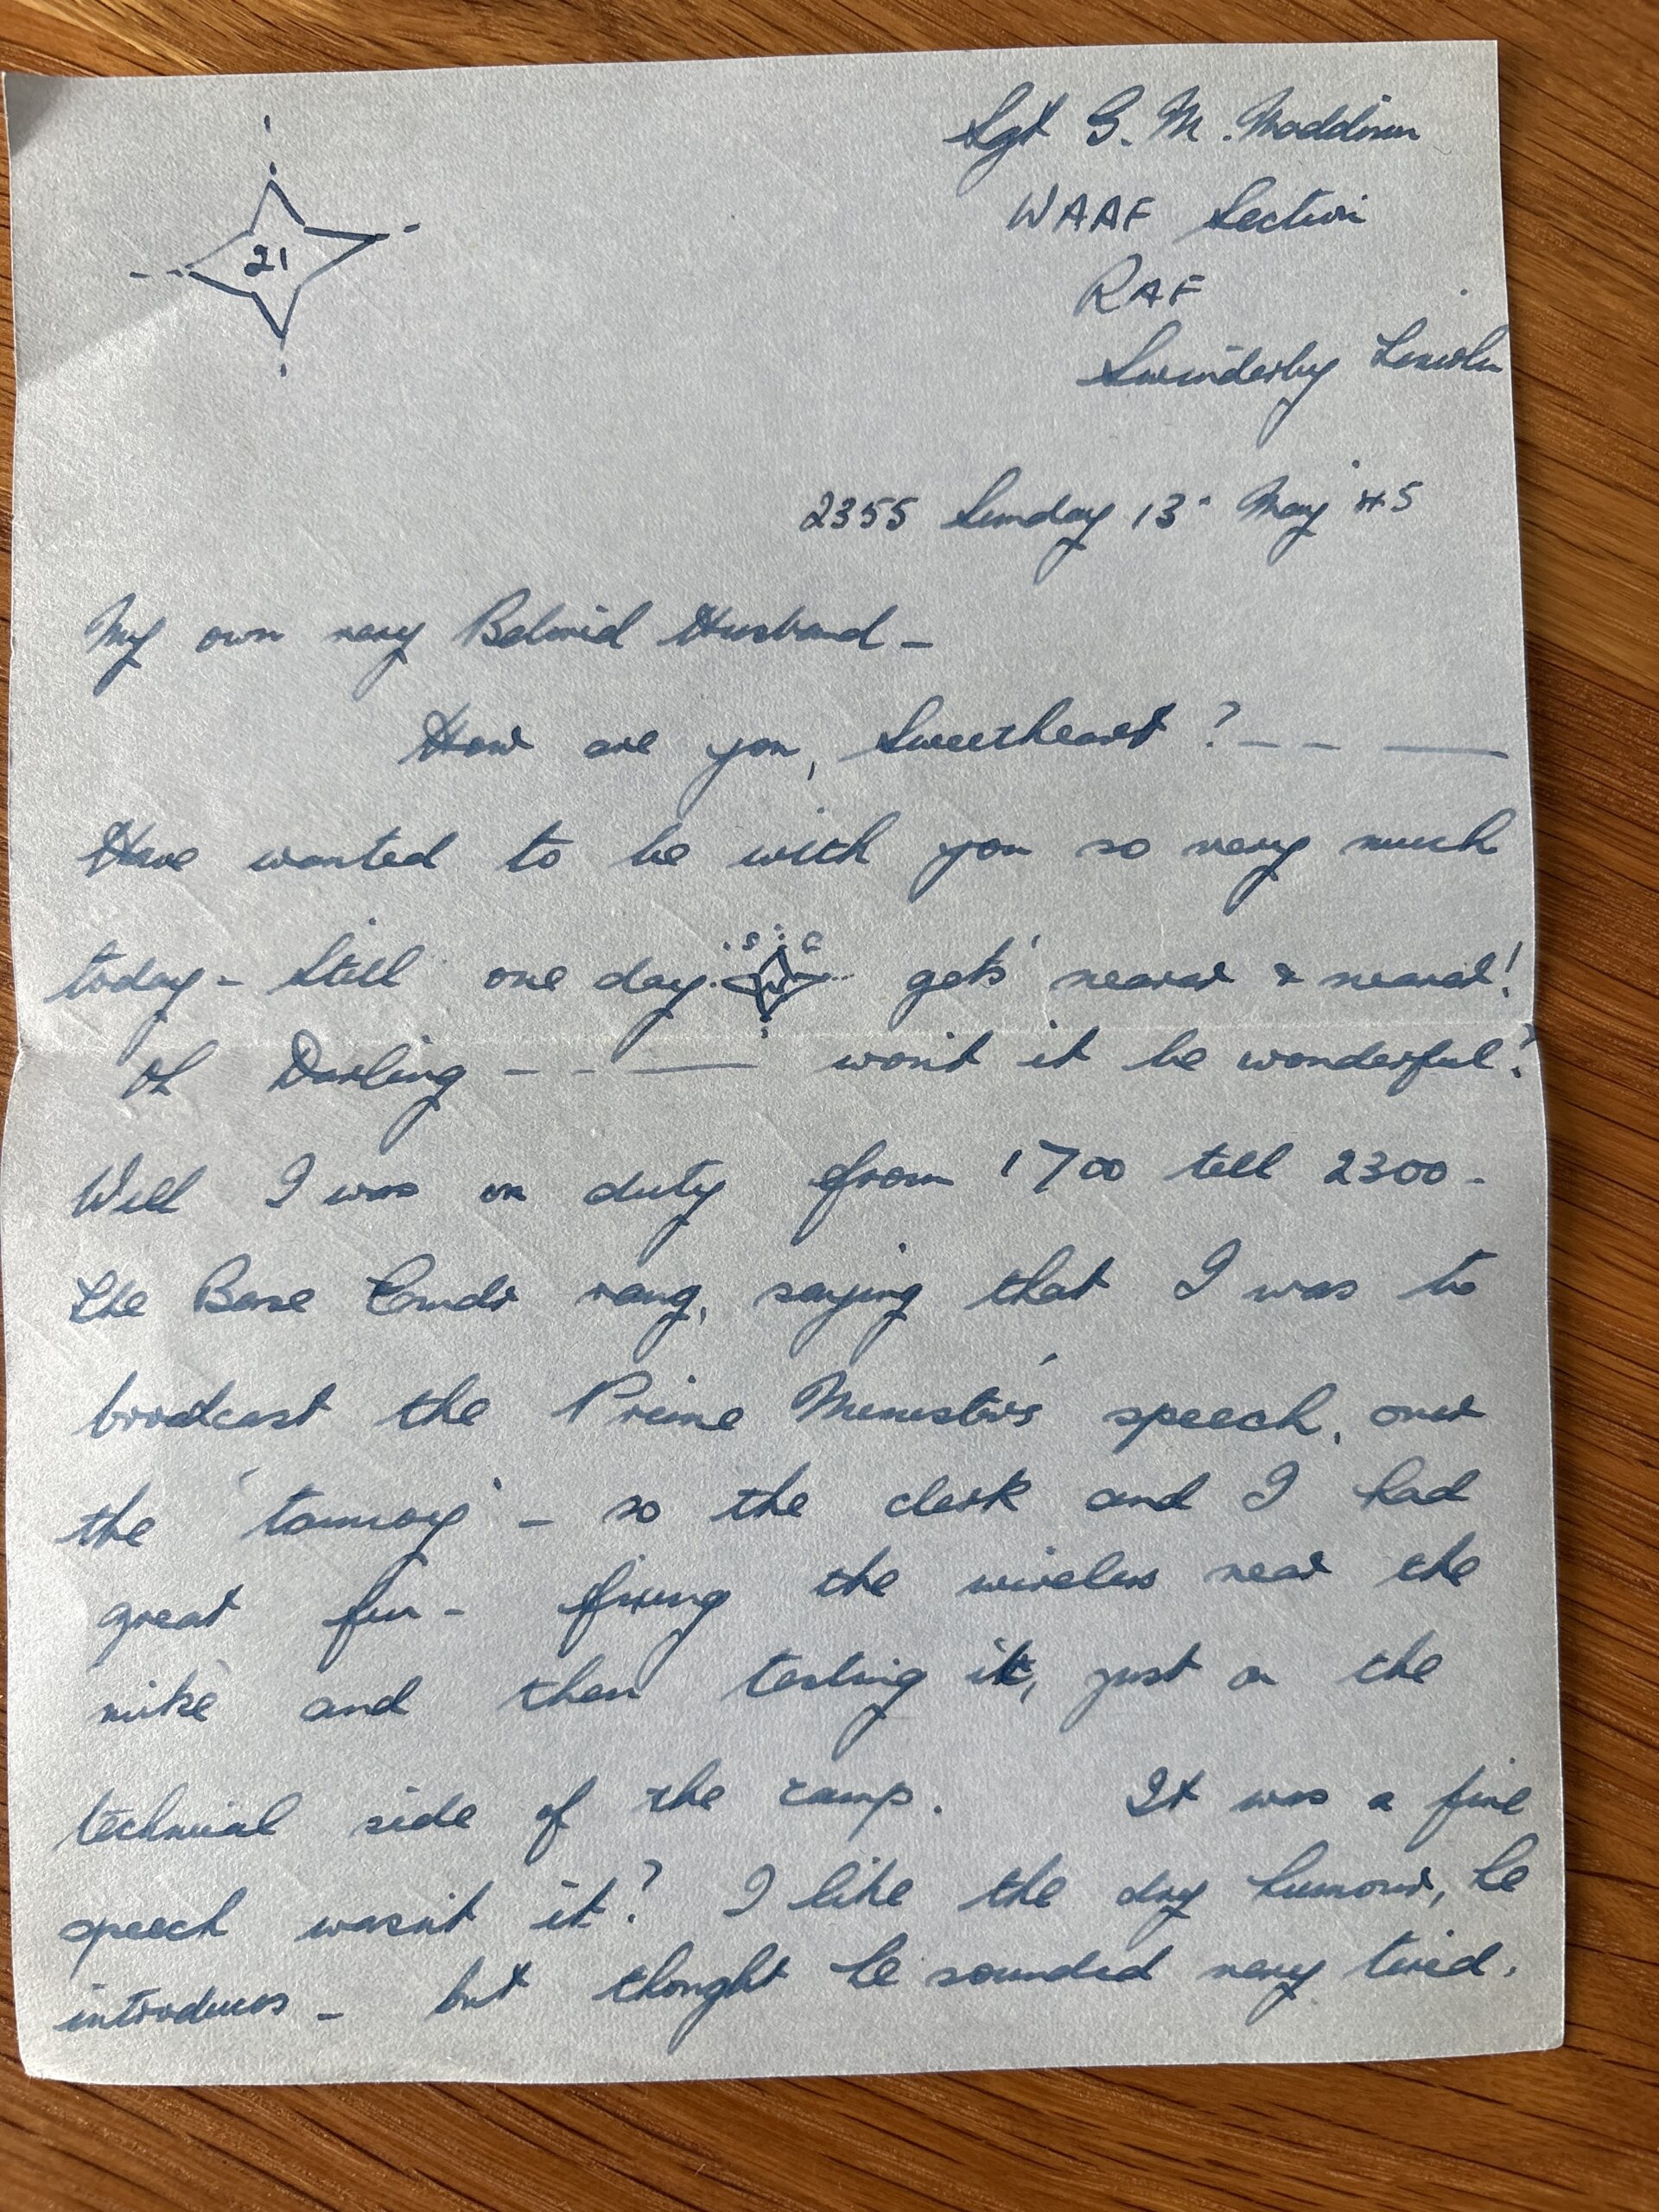 Sgt G. M. Maddison
21
WAAF Section
RAF
Swinderby Lincoln
2355 Sunday 13 May '45
My own very Beloved Husband -
How are you, Sweetheart? - - —
Have wanted to be with you so very much
today - Still one day gets nearer & nearer!
Oh Darling - - — won't it be wonderful?
Well I was on duty from 1700 till 2300 -
the Base Cmdr rang, saying that I was to
brodcast the Prime Minister's speech, over
the 'tannoy' - so the clerk and I had
great fun - fixing the wireless near the
mike and then testing it, just on the
technical side of the camp. It was a fine
speech wasn't it? I like the dry humour, he
introduces - but thought he sounded very tired.